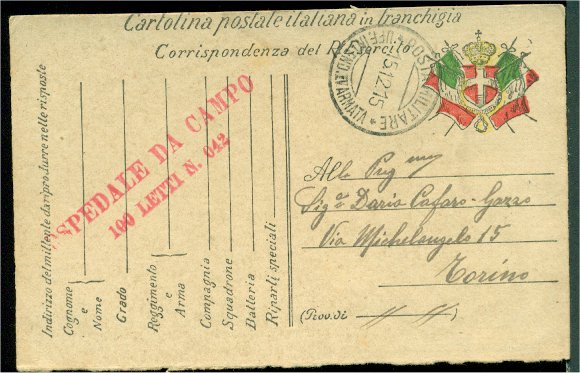 Cartolina postale italiana in franchigia
Corrispondenza del R. Esercito
POSTA MILITARE
15.12.15
ARMATA
OSPEDALE DA CAMPO
100 LETTI N. 042
Indirizzo del mittente da riprodurre nelle risposte
Cognome
e
Nome
Grado
Reggimento
e
Arma
Compagnia
Squadrone
Batteria
Riparti speciali
Alla
Sig.ª Daria Cafaro-Gazzo
Via Michelangelo 15
Torino
(Prov. di